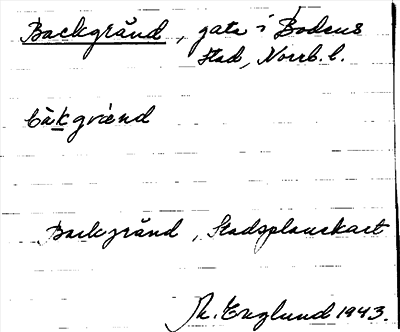 Backgränd, gata i Bodens
stad, Norrb. l.
bàkgrænd
Backgränd, Stadsplanekart
Th. Englund 1943.